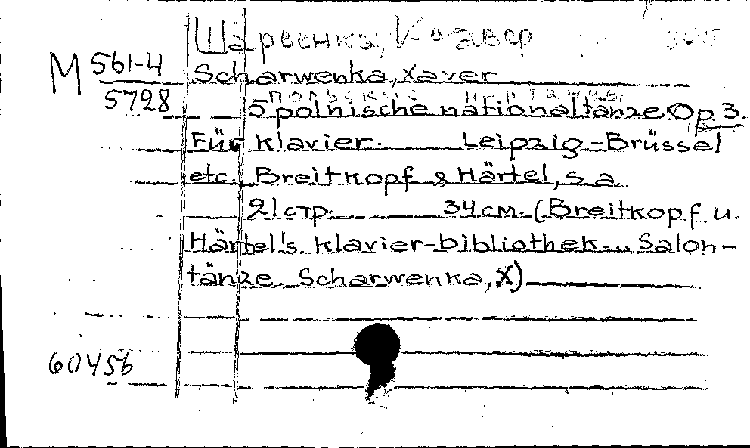 Шарвенка, Ксавер
М 561-4
5728
Scharwenka, Xaver
5 polnische nationaltänze. Op 3.
Für Klavier. Leipzig-Brüssel
etc. Breitkopf & Härtel, s. a.
21 стр. 34 см. (Breitkopf u.
Härtel's Klavier-bibliothek. u Salon-
tänze Scharwenka, X)
60456